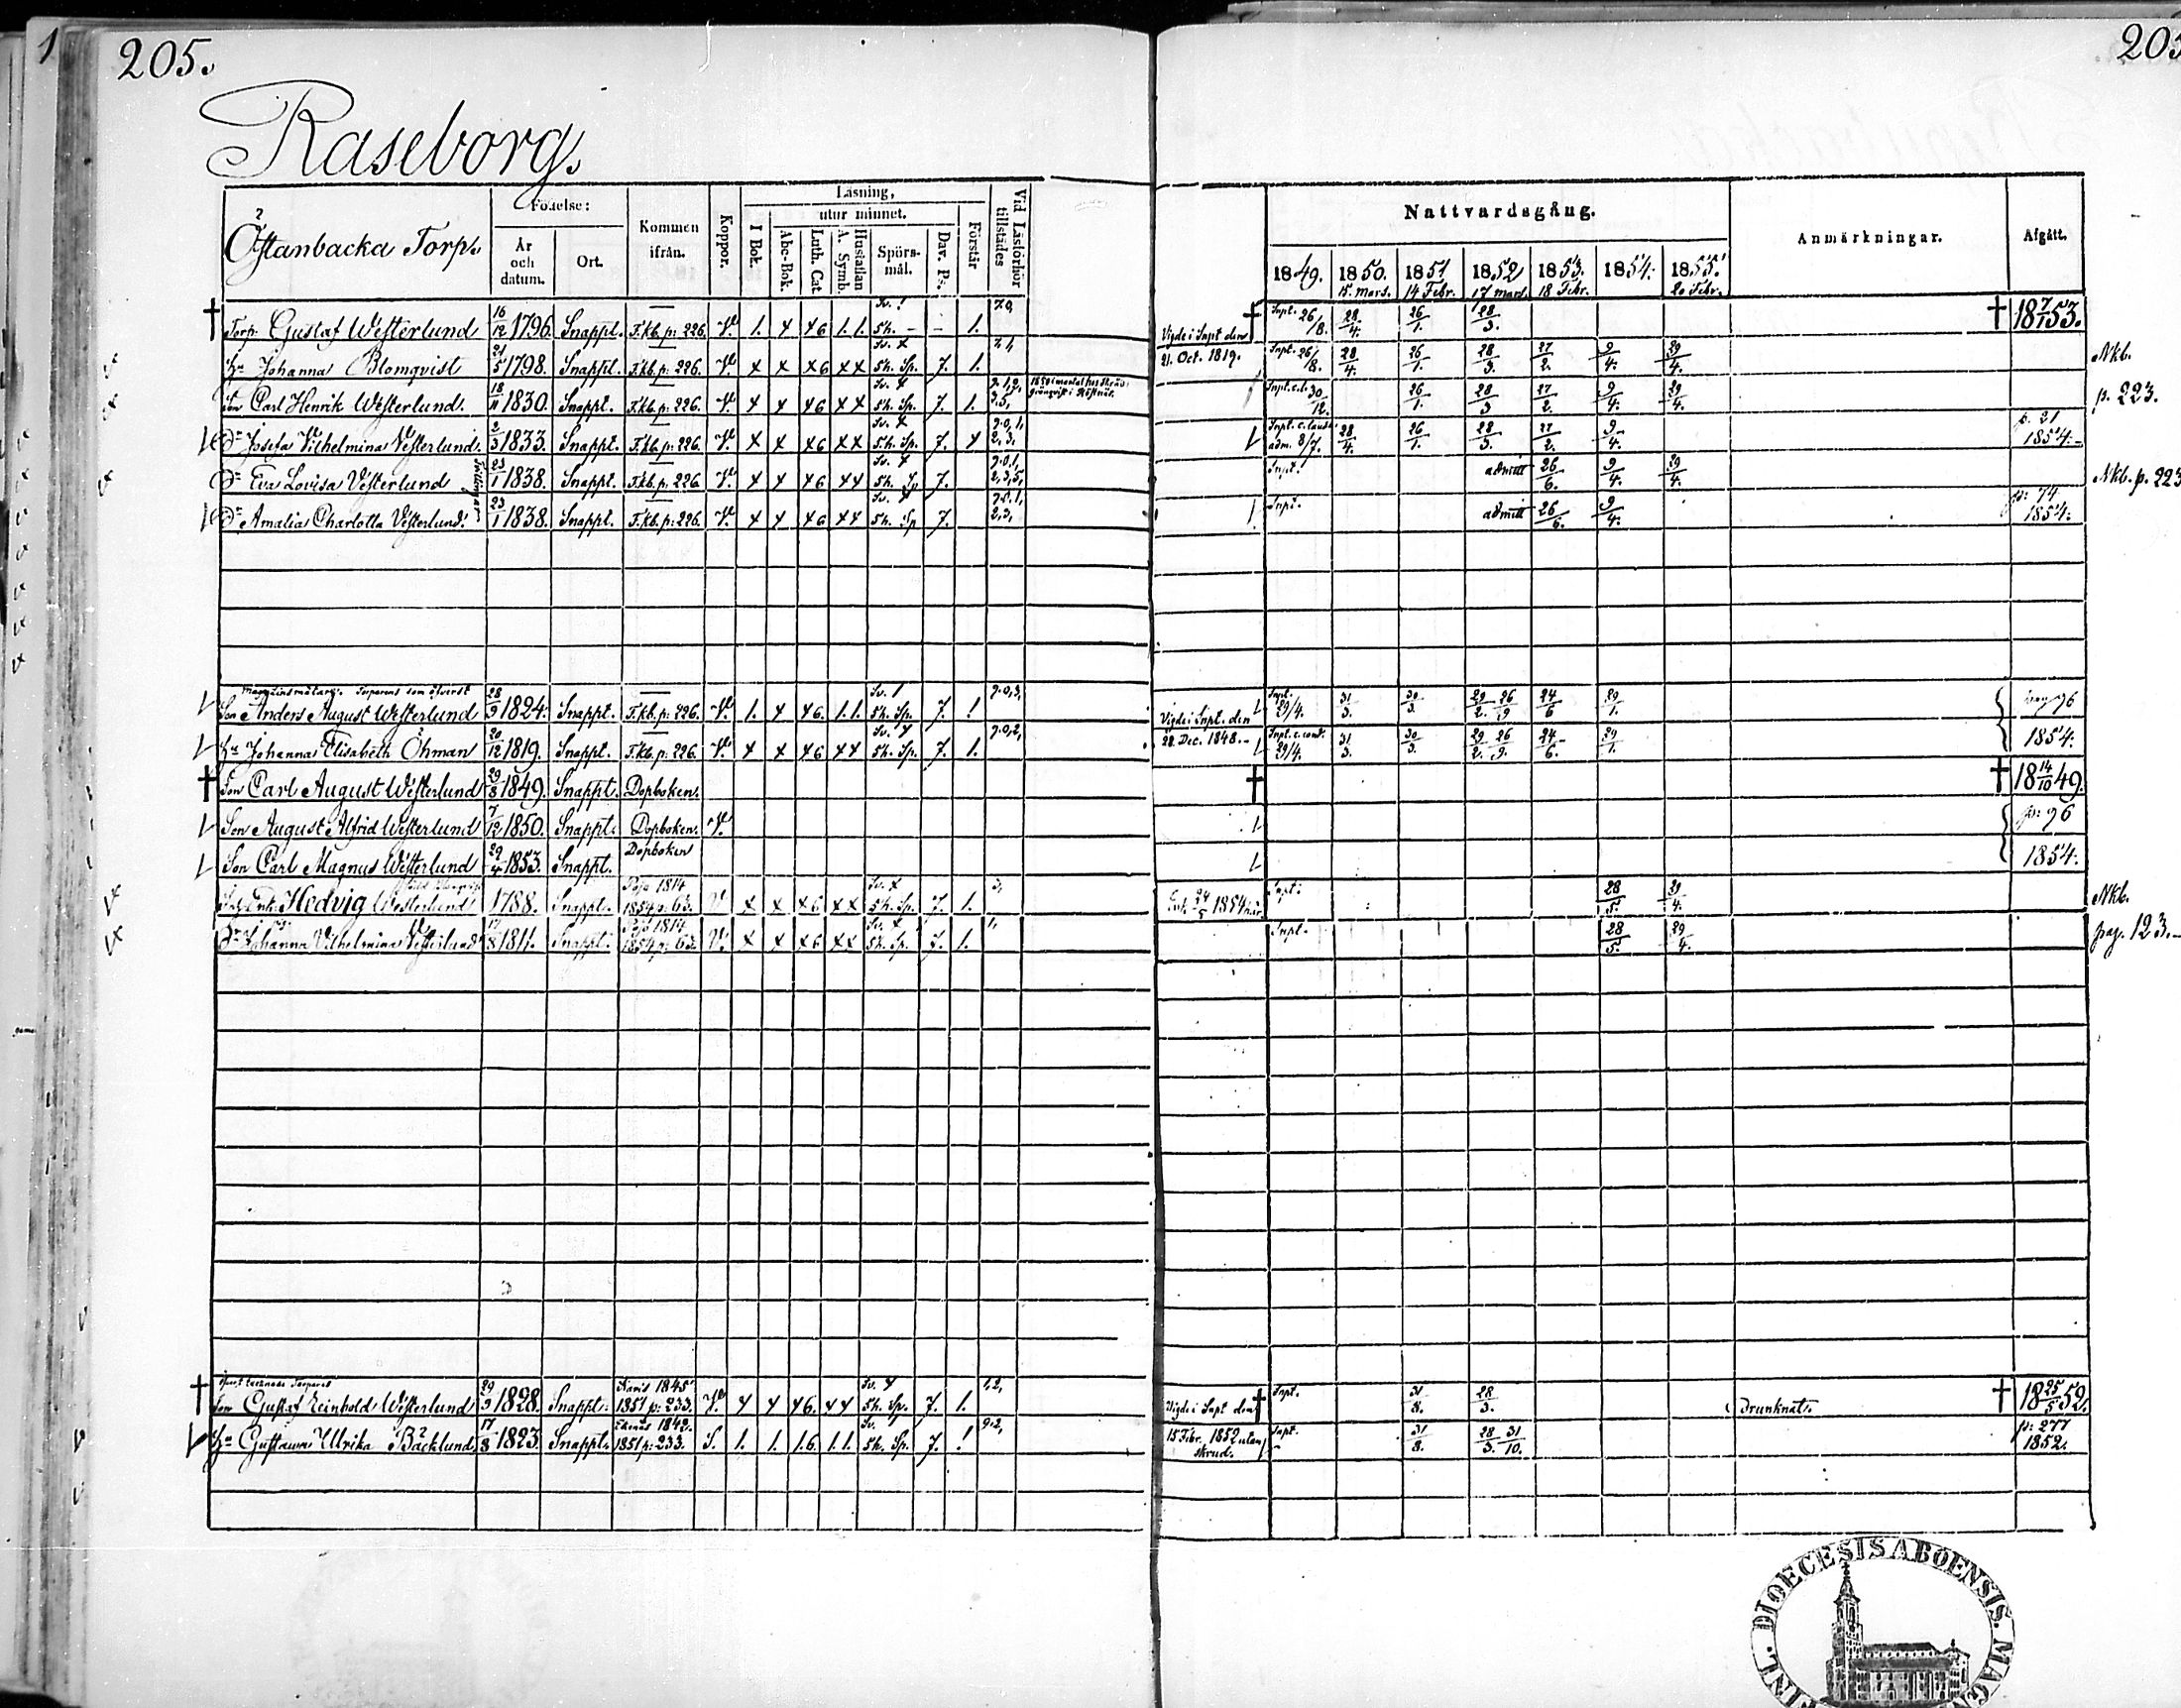 205.
205
Raseborg.
Östanbacka Torp.
Födelse:
År och datum.
Ort.
Kommen ifrån.
Koppor.
Läsning,
utur minnet.
I Bok.
Abc-Bok.
Luth. Cat
A. Symb. Hustaflan
Spörs-mål.
Dav. Ps.
Förstår
Vid Läsförhör tillstädes
Nattvardsgång.
1849. 1850. 1851 1852 1853. 1854. 1855.
15 mars. 14 Febr. 17 mars. 18 Febr. 20 Febr.
Anmärkningar.
Afgått.
† Torp. Gustaf Westerlund 16/12 1796. Snappt. F.kb. p: 226. V. 1. x x6 1.1. Sv. 1 Sh. - - 1. † Snpt. 26/8. 28/4. 26/1. 28/3. † 18 7/1 53.
Vigde i Snpt den 21. Oct. 1819.
Hu Johanna Blomqvist 21/5 1798. Snappt. F.kb. p: 226. V. x x x6 xx Sv. x Sh. Sp. 7. 1. Snpt. 26/8. 28/4. 26/1. 28/3. 27/2. 9/4. 29/4. Nkb.
Son Carl Henrik Westerlund. 18/11 1830. Snappt. F.kb. p: 226. V. x x x6 xx Sv. x Sh. Sp. 7. 1. 30/12. 26/1. 28/3 27/2. 9/4. 29/4. p. 223.
Dr Josefa Vilhelmina Westerlund. 2/3 1833. Snappt. F.kb. p: 226. V. x x x6 xx Sv. x Sh. Sp. 7. x adm. 8/7. 28/4. 26/1. 28/3. 27/2. 9/4. p. 21 1854.
Dr Eva Lovisa Westerlund 23/1 1838. Snappt. F.kb. p: 226 V. x x x6 xx Sv. x Sh. Sp 7. Snpt. admitt 26/6. 9/4. 29/4. Nkb. p. 223
Dr Amalia Charlotta Westerlund. 23/1 1838. Snappt. F.kb. p: 226. V. x x x6 xx Sv. x Sh. Sp 7. Snpt. admitt 26/6. 9/4. p: 74 1854.
Son Anders August Westerlund 28/9 1824. Snappt. F.kb. p: 226. V. 1. x x6. 1.1. Sv. 1 Sh. Sp. 7. 1 Snpt. 29/4. 31/3. 30/3. 29/2. 26/9 24/6 29/1. pag 96
Vigde i Snpt. den 28. Dec. 1848.
Hu Johanna Elisabeth Öhman 20/12 1819. Snappt. F.kb. p: 226. V. x x x6 xx Sv. x Sh. Sp. 7. 1. 29/4. 31/3. 30/3. 29/2. 26/9. 24/6. 29/1. 1854.
† Son Carl August Westerlund 29/8 1849. Snappt. Dopboken. † † 18 14/10 49.
Son August Alfrid Westerlund 7/12 1850. Snappt. Dopboken. V. p: 96
Son Carl Magnus Westerlund 29/4 1853. Snappt. Dopboken 1854.
Hedvig Westerlund 1788. Snappt. Pojo 1814 1854 p: 63. V x x x6 xx Sv. x Sh. Sp. 7. 1. 24/5 1854 Snpt. 28/5. 29/4. Nkb.
Dr Johanna Vilhelmina Westerlund 17/8 1811. Snappt. Pojo 1814 1854 p: 63. V. x x x6 xx Sv. x Sh. Sp. 7. 1. Snpt. 28/5. 29/4. pag. 123.
† Son Gustaf Reinhold Westerlund 29/9 1828. Snappt. Karis 1845 1851 p: 233. V. x x x6. xx Sv. x Sh. Sp. 7. 1. 1,2, † Snpt. 31/8. 28/3. Drunknat. † 18 25/5 52.
Vigde i Snpt den 15 Febr. 1852 utan skrud.
Hu Gustava Ulrika Backlund 17/8 1823. Snappt. Ekenäs 1842. 1851 p: 233. S. 1. 1. 1.6. 1.1. Sv. 1 Sh. Sp. 7. 1 Snpt. 31/8. 28/3. 31/10. p: 277 1852.
FINL. DIOECESIS ABOENSIS. MAGN